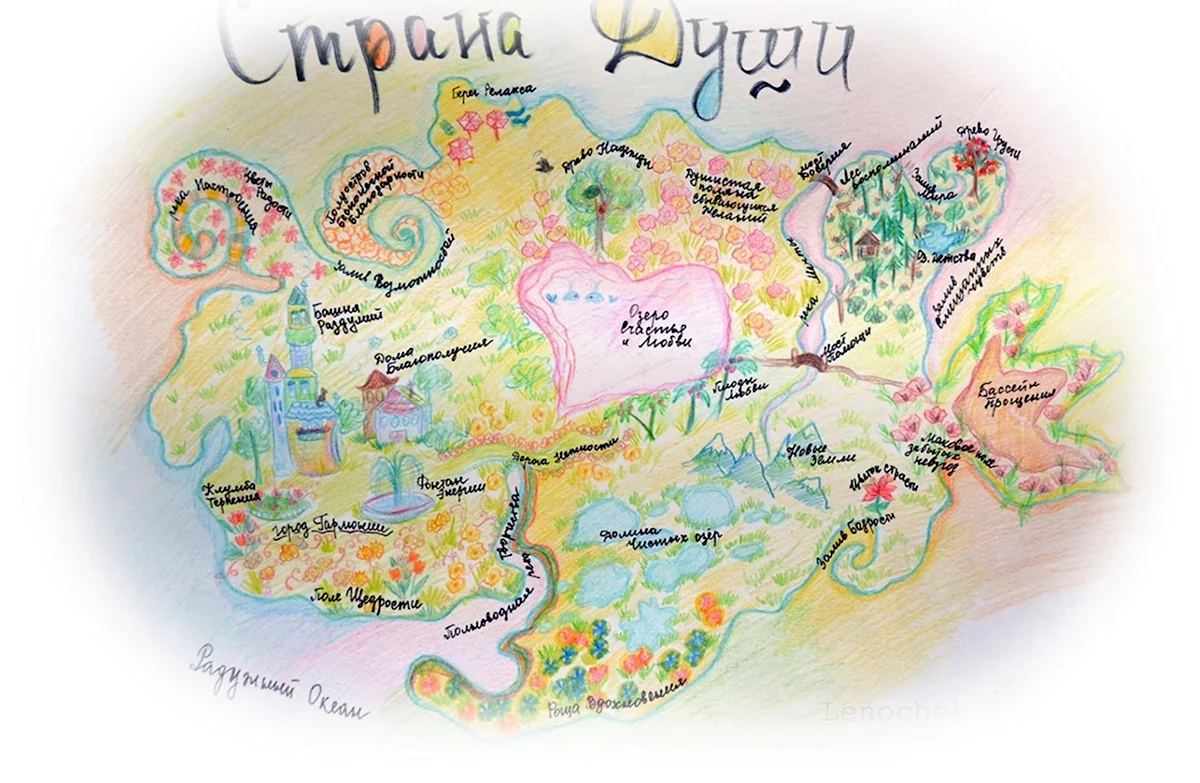 Страна Души
Берег Релакса
Древо Надежды
Душистая
поляна
сбывающихся
желаний
мост
Доверия
Лес
воспоминаний
Древо Грусти
Залив
Мира
О. детства
залив
смешанных
чувств
Настроения
Цветы
Радости
Полуостров
бесконечной
благодарности
Залив Возможностей
Башня
Раздумий
Дома
Благополучия
Озеро
Счастья
и Любви
Плоды
Любви
Мост
Помощи
Бассейн
прощения
Маковое
забытых
невзгод
Новые
Земли
Дорога Нежности
Клумба
Терпения
Фонтан
Энергии
город Гармонии
Поле Щедрости
Полноводная река
Творчества
Долина
Чистых озёр
Цветок страсти
Залив Бодрости
Роща Вдохновения
Радужный Океан